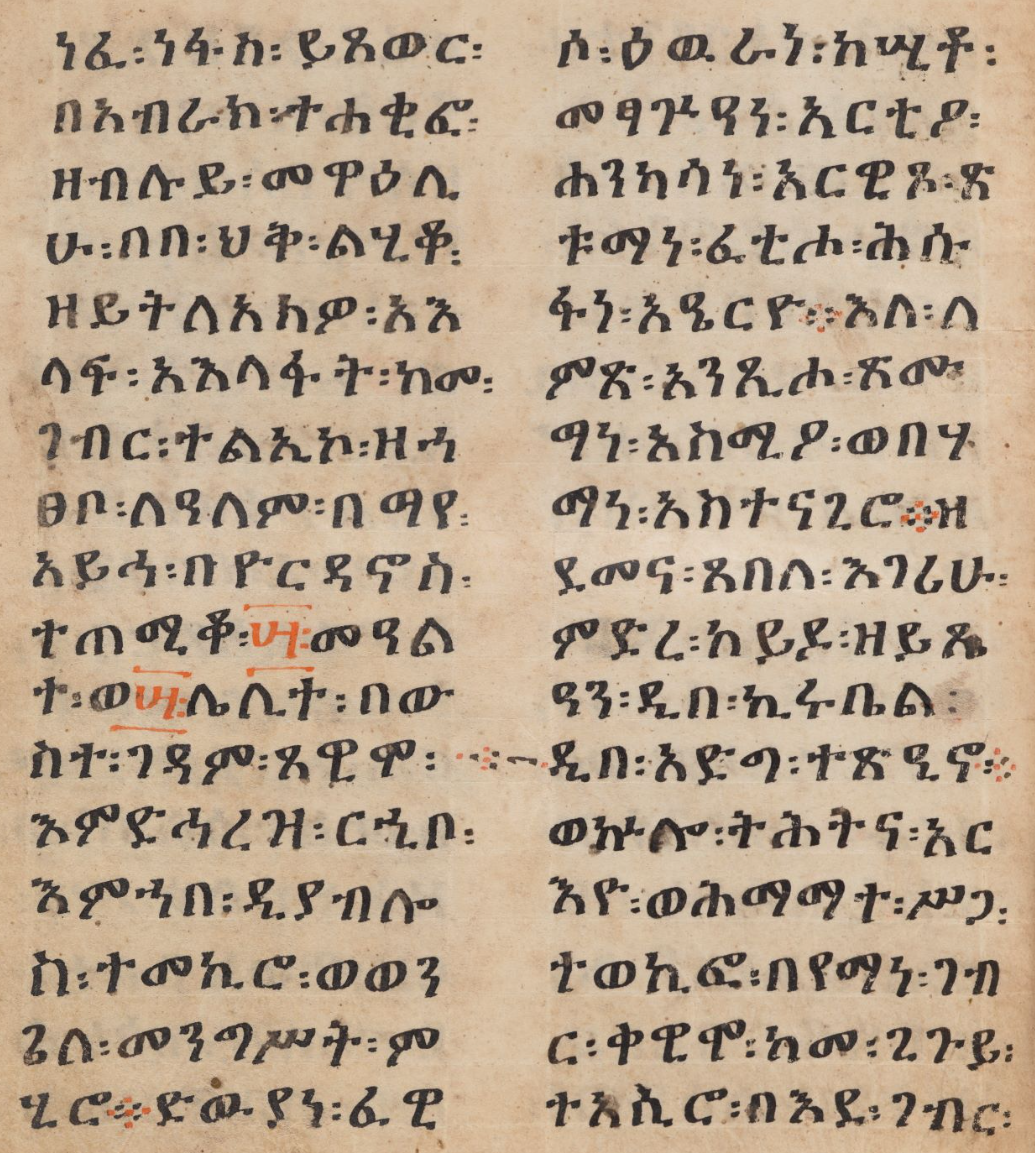 ነፈ፡ነፋስ፡ይጸውር፡
በአብራክ፡ተሐቂፎ፡
ዘብሉይ፡መዋዕሊ
ሁ፡በበ፡ህቅ፡ልሂቆ፡
ዘይትለአክዎ፡አእ
ላፍ፡አእላፋት፡ከመ፡
ገብር፡ተልኢኮ፡ዘሓ
ፀቦ፡ለዓለም፡በማየ፡
አይኅ፡በዮርዳኖስ፡
ተጠሚቆ፡፵፡መዓል
ተ፡ወ፵፡ሌሊተ፡በው
ስተ፡ገዳም፡ጸዊሞ፡
እምድኅረዝ፡ርኂቦ፡
እምኀበ፡ዲያብሎ
ስ፡ተመኪሮ፡ወወን
ጌለ፡መንግሥት፡ም
ሂሮ፨ድውያነ፡ፈዊ
ሶ፡ዕዉራነ፡ከሢቶ፡
መፃጕዓነ፡አርቲዖ፡
ሐንካሳነ፡አርዊጾ፡ጽ
ቱማነ፡ፈቲሖ፡ሕሱ
ፋነ፡አዔርዮ፨እለ፡ለ
ምጽ፡አንጺሖ፡ጽሙ
ማነ፡አስሚዖ፡ወበሃ
ማነ፡አስተናጊሮ፨ዘ
ደመና፡ጸበለ፡እገሪሁ፡
ምድረ፡ከይዶ፡ዘይጼ
ዓን፡ዲበ፡ኪሩቤል፡
ዲበ፡እድግ፡ተጽዒኖ፨
ወኵሎ፡ትሕትና፡አር
እዮ፡ወሕማማተ፡ሥጋ፡
ተወኪፎ፡በየማነ፡ገብ
ር፡ቀዊሞ፡ከመ፡ጊጉይ፡
ተአሲሮ፡በእደ፡ገብር፡